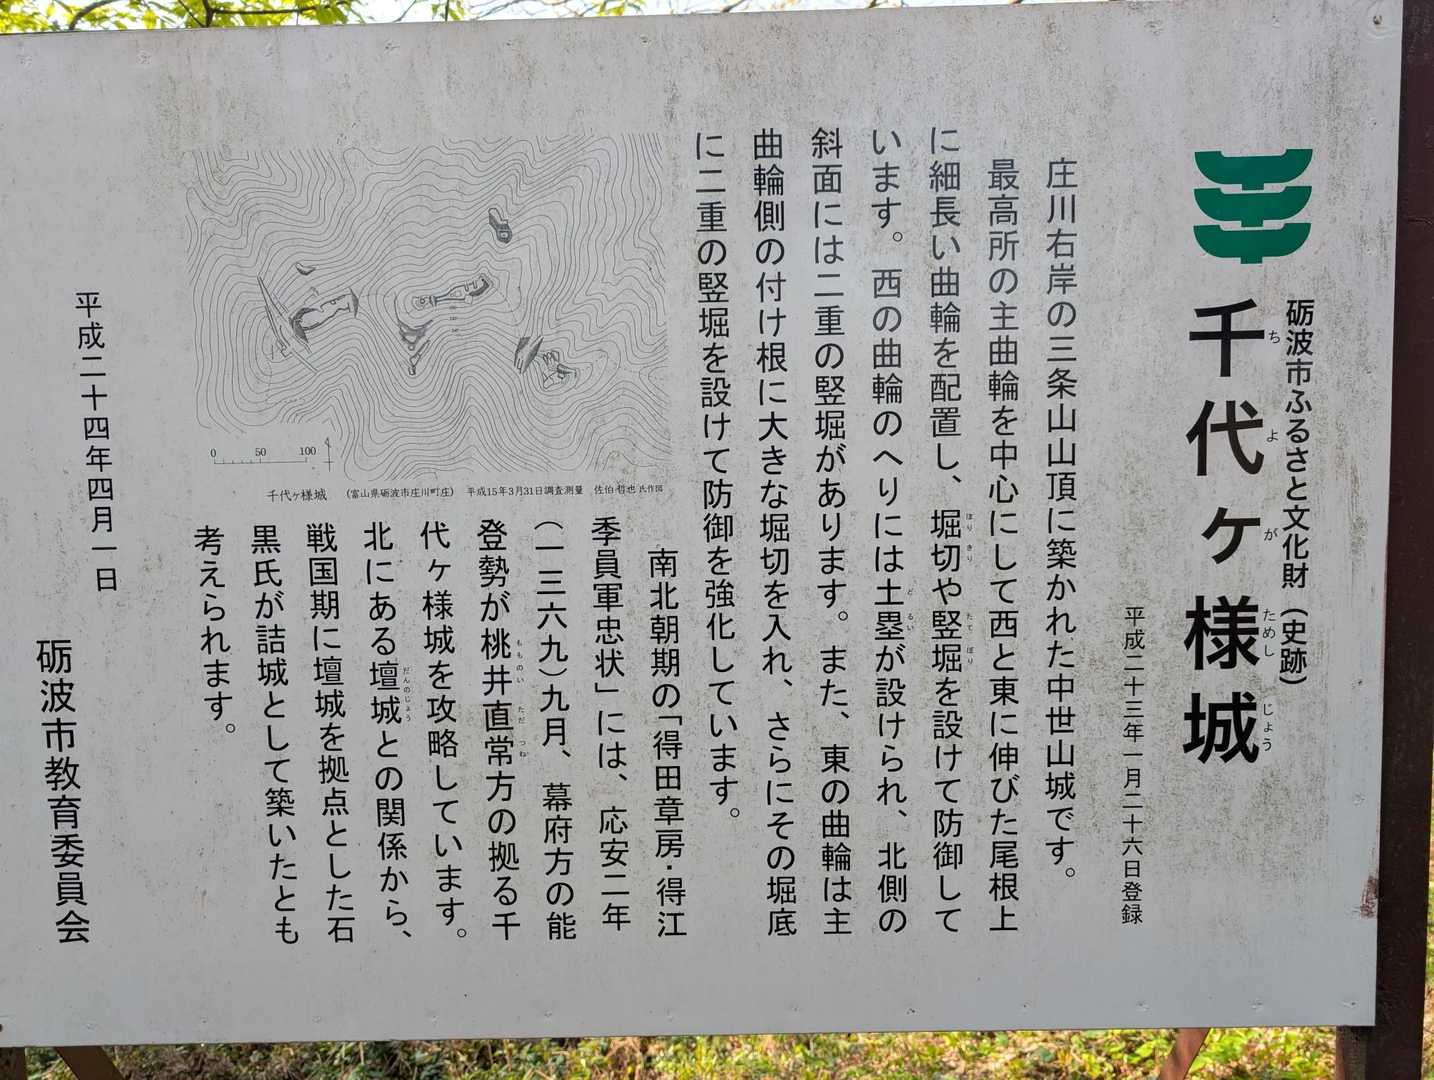 砺波市ふるさと文化財(史跡)
千代ヶ様城
ち よ が ためし じょう
平成二十三年一月二十六日登録
庄川右岸の三条山山頂に築かれた中世山城です。
最高所の主曲輪を中心にして西と東に伸びた尾根上
に細長い曲輪を配置し、堀切や竪堀を設けて防御して
ほり きり たて ぼり
います。西の曲輪のへりには土塁が設けられ、北側の
ど るい
斜面には二重の竪堀があります。また、東の曲輪は主
曲輪側の付け根に大きな堀切を入れ、さらにその堀底
に二重の竪堀を設けて防御を強化しています。
南北朝期の「得田章房・得江
季員軍忠状」には、応安二年
(一三六九)九月、幕府方の能
登勢が桃井直常方の拠る千
もものい ただ つね
代ヶ様城を攻略しています。
北にある壇城との関係から、
だんのじょう
戦国期に壇城を拠点とした石
黒氏が詰城として築いたとも
考えられます。
0 50 100
千代ヶ様城 (富山県砺波市庄川町庄) 平成15年3月31日調査測量 佐伯哲也氏作図
平成二十四年四月一日
砺波市教育委員会